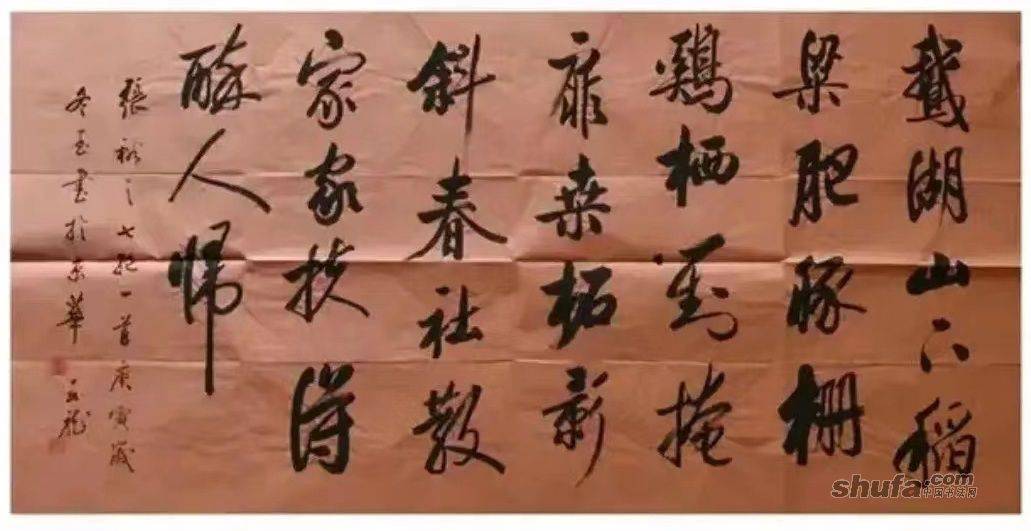 鵞湖山下稻
粱肥豚柵
鷄栖對掩
扉桑柘影
斜春社散
家家扶得
醉人歸
張裕之七絕一首庚寅歲
冬至書於京華
shufa.com
中国书法网